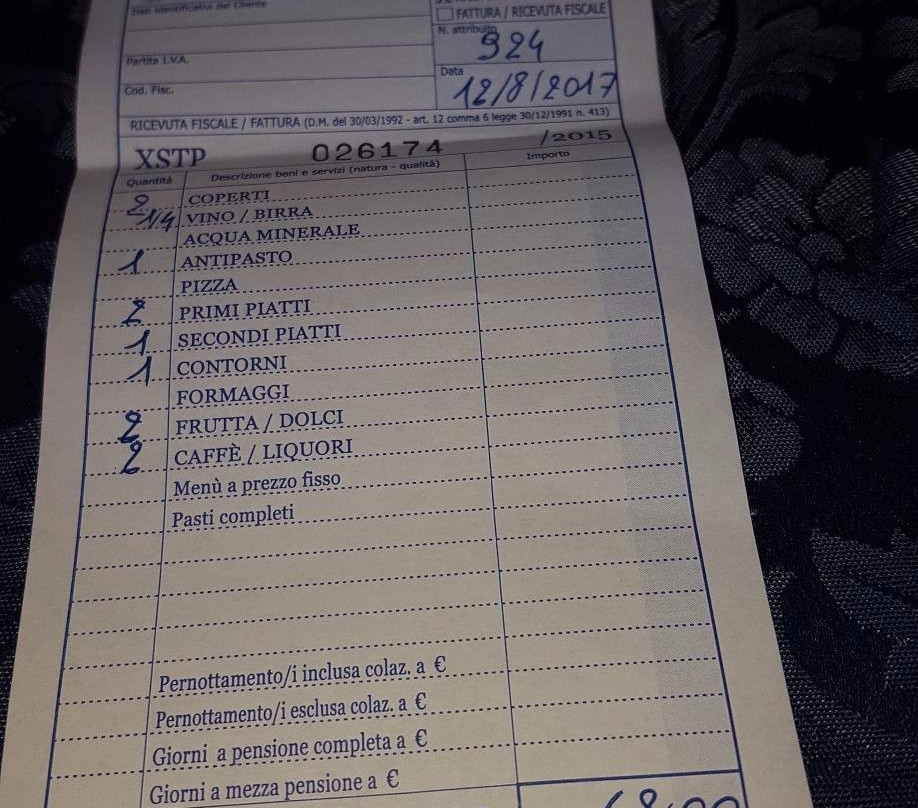 Dati Identificativi del Cliente
FATTURA / RICEVUTA FISCALE
N. attribuito
924
Partita I.V.A.
Data
12/8/2017
Cod. Fisc.
RICEVUTA FISCALE / FATTURA (D.M. del 30/03/1992 - art. 12 comma 6 legge 30/12/1991 n. 413)
XSTP 026174 /2015
Quantità Descrizione beni e servizi (natura - qualità) Importo
2 COPERTI
1/4 VINO / BIRRA
ACQUA MINERALE
1 ANTIPASTO
PIZZA
2 PRIMI PIATTI
1 SECONDI PIATTI
1 CONTORNI
FORMAGGI
2 FRUTTA / DOLCI
2 CAFFÈ / LIQUORI
Menù a prezzo fisso
Pasti completi
Pernottamento/i inclusa colaz. a €
Pernottamento/i esclusa colaz. a €
Giorni a pensione completa a €
Giorni a mezza pensione a €